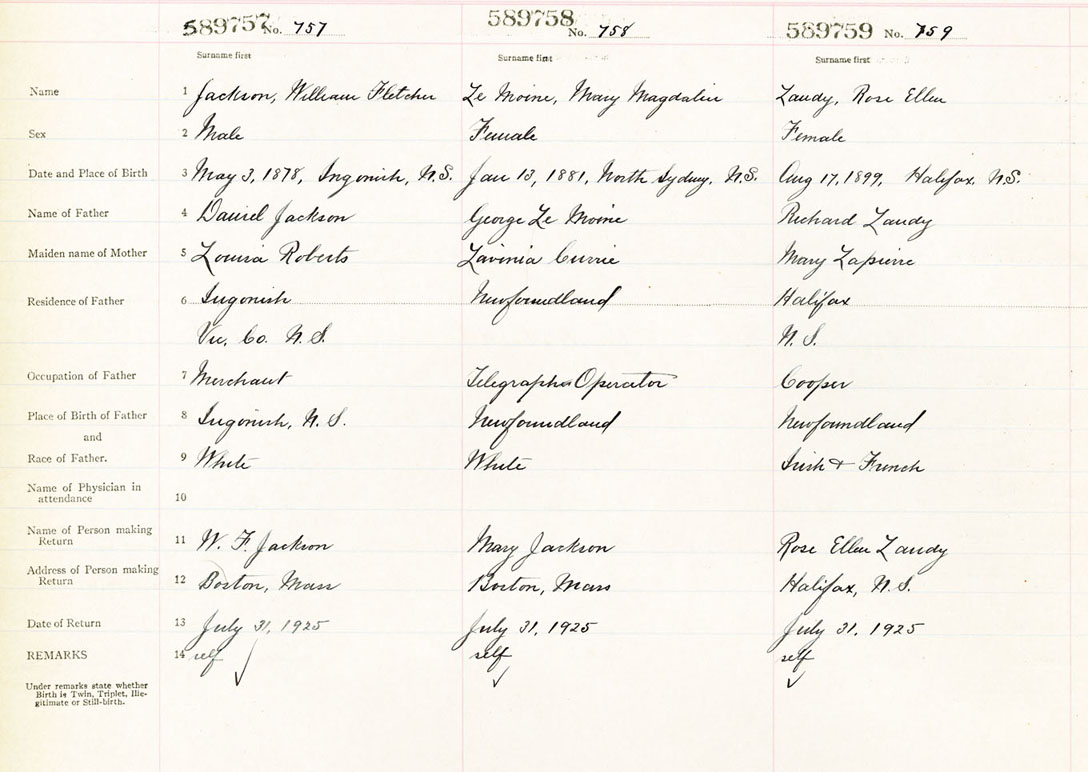 589757 No. 757 589758 No. 758 589759 No. 759
Surname first Surname first Surname first
Name 1 Jackson, William Fletcher Le Moine, Mary Magdalin Landy, Rose Ellen
Sex 2 Male Female Female
Date and Place of Birth 3 May 3, 1878, Ingonish, N.S. Jan 13, 1881, North Sydney, N.S. Aug 17, 1899, Halifax, N.S.
Name of Father 4 Daniel Jackson George Le Moine Richard Landy
Maiden name of Mother 5 Louisa Roberts Lavinia Currie Mary Lapierre
Residence of Father 6 Ingonish Newfoundland Halifax
Vic. Co. N.S. N.S.
Occupation of Father 7 Merchant Telegraph Operator Cooper
Place of Birth of Father 8 Ingonish, N.S. Newfoundland Newfoundland
and
Race of Father. 9 White White Irish & French
Name of Physician in
attendance 10
Name of Person making
Return 11 W. F. Jackson Mary Jackson Rose Ellen Landy
Address of Person making
Return 12 Boston, Mass Boston, Mass Halifax, N.S.
Date of Return 13 July 31, 1925 July 31, 1925 July 31, 1925
REMARKS 14 self self self
Under remarks state whether
Birth is Twin, Triplet, Ille-
gitimate or Still-birth.